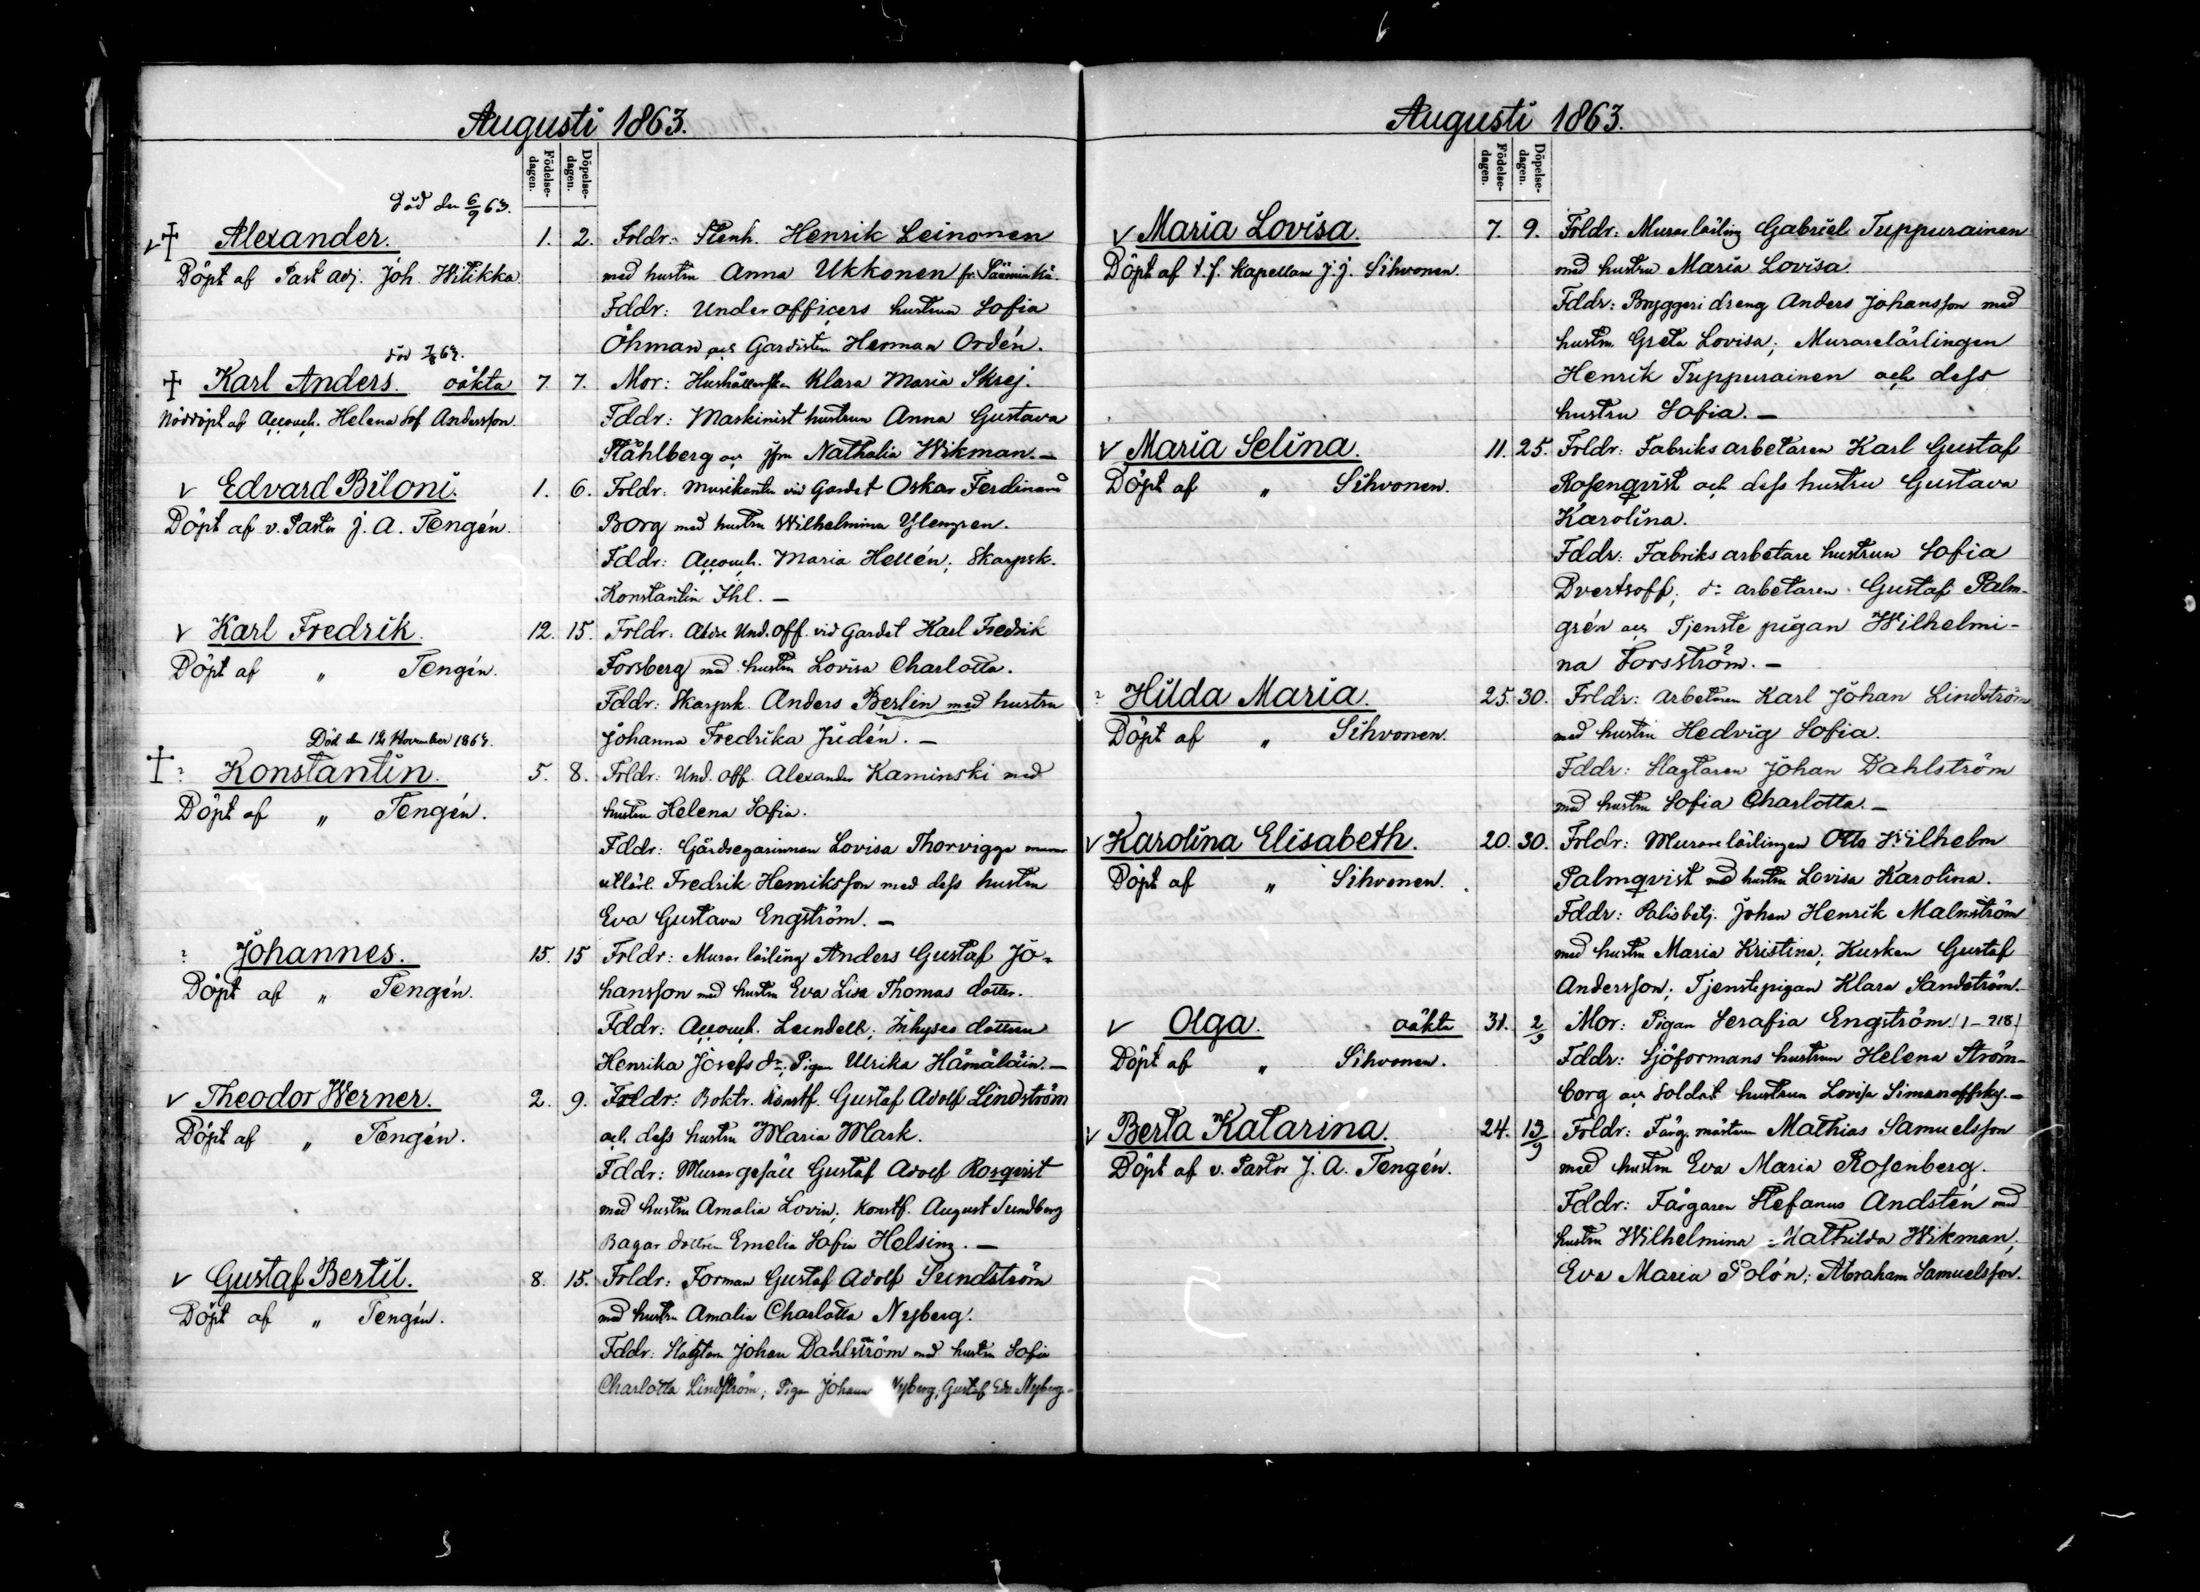 Augusti 1863.
Födelse-dagen.
Döpelse-dagen.
Död den 6/9 63.
Alexander. 1. 2. Frldr: Stenh. Henrik Leinonen
Döpt af Past. adj. Joh. Witikka. med hustru Anna Ukkonen fr. Sääminki.
Fddr: Under officers hustrun Sofia
Öhman och Gardisten Herman Ordén.
Karl Anders. oäkta 7. 7. Mor: Hushållerskan Klara Maria Skrej.
Nöddöpt af Accouch. Helena Sof. Andersson. Fddr: Maskinist hustrun Anna Gustava
Ståhlberg och jfrn Nathalia Wikman. —
v Edvard Biloni. 1. 6. Frldr: Musikanten vid Gardet Oskar Ferdinand
Döpt af v. Pastor J. A. Tengén. Borg med hustru Wilhelmina Ylengren.
Fddr: Accouch. Maria Hellén; Skarpsk.
Konstantin Ihl. —
v Karl Fredrik. 12. 15. Frldr: Und. off. vid Gardet Karl Fredrik
Döpt af „ Tengén. Forsberg med hustru Lovisa Charlotta.
Fddr: Skarpsk. Anders Berlin med hustru
Johanna Fredrika Judén. —
Död den 12 November 1864.
Konstantin. 5. 8. Frldr: Und. off. Alexander Kaminski med
Döpt af „ Tengén. hustru Helena Sofia.
Fddr: Gårdsegarinnan Lovisa Thorvigge
Fredrik Henriksson med dess hustru
Eva Gustava Engström. —
Johannes. 15. 15 Frldr: Murar lärling Anders Gustaf Jo-
Döpt af „ Tengén. hansson med hustru Eva Lisa Thomas dotter.
Fddr: Accouch. Lundell; Inhyses dottern
Henrika Josefs dr; Pigan Ulrika Hämäläin. —
v Theodor Werner. 2. 9. Frldr: Boktr. konstf. Gustaf Adolf Lindström
Döpt af „ Tengén. och dess hustru Maria Mark.
Fddr: Murar gesäll Gustaf Adolf Rosqvist
med hustru Amalia Lovin; Konstf. August Sundberg
Bagar dottren Emelia Sofia Helsing. —
v Gustaf Bertil. 8. 15. Frldr: Forman Gustaf Adolf Sundström
Döpt af „ Tengén. med hustru Amalia Charlotta Nyberg.
Fddr: Slagtaren Johan Dahlström med hustru Sofia
Charlotta Lindström; Pigan Johanna Nyberg; Gustaf Edv. Nyberg. -
Augusti 1863.
Födelse-dagen.
Döpelse-dagen.
v Maria Lovisa. 7. 9. Frldr: Murar lärling Gabriel Tuppurainen
Döpt af t. f. Kapellan J. J. Sihvonen. med hustru Maria Lovisa.
Fddr: Bryggeri dreng Anders Johansson med
hustru Greta Lovisa; Murarelärlingen
Henrik Tuppurainen och dess
hustru Sofia. —
v Maria Selina. 11. 25. Frldr: Fabriks arbetaren Karl Gustaf
Döpt af „ Sihvonen. Rosenqvist och dess hustru Gustava
Karolina.
Fddr: Fabriks arbetare hustrun Sofia
Dvertsoff; d:o arbetaren Gustaf Palm-
grén och Tjenste pigan Wilhelmi-
na Forsström. —
Hilda Maria. 25. 30. Frldr: Arbetaren Karl Johan Lindström
Döpt af „ Sihvonen. med hustru Hedvig Sofia.
Fddr: Slagtaren Johan Dahlström
med hustru Sofia Charlotta. —
v Karolina Elisabeth. 20. 30. Frldr: Murare lärlingen Otto Wilhelm
Döpt af „ Sihvonen. Palmqvist med hustru Lovisa Karolina.
Fddr: Polisbetj. Johan Henrik Malmström
med hustru Maria Kristina; Kusken Gustaf
Andersson; Tjenstepigan Klara Sandström.
v Olga. oäkta 31. 2/9 Mor: Pigan Serafia Engström (1 – 218)
Döpt af „ Sihvonen. Fddr: Sjöformans hustrun Helena Ström-
borg och Soldat hustrun Lovisa Simanoffsky. —
v Berta Katarina. 24. 13/9 Frldr: Färg. mästaren Mathias Samuelsson
Döpt af v. Pastor J. A. Tengén. med hustru Eva Maria Rosenberg.
Fddr: Färgaren Stefanus Andstén med
hustru Wilhelmina Mathilda Wikman;
Eva Maria Polón; Abraham Samuelsson.